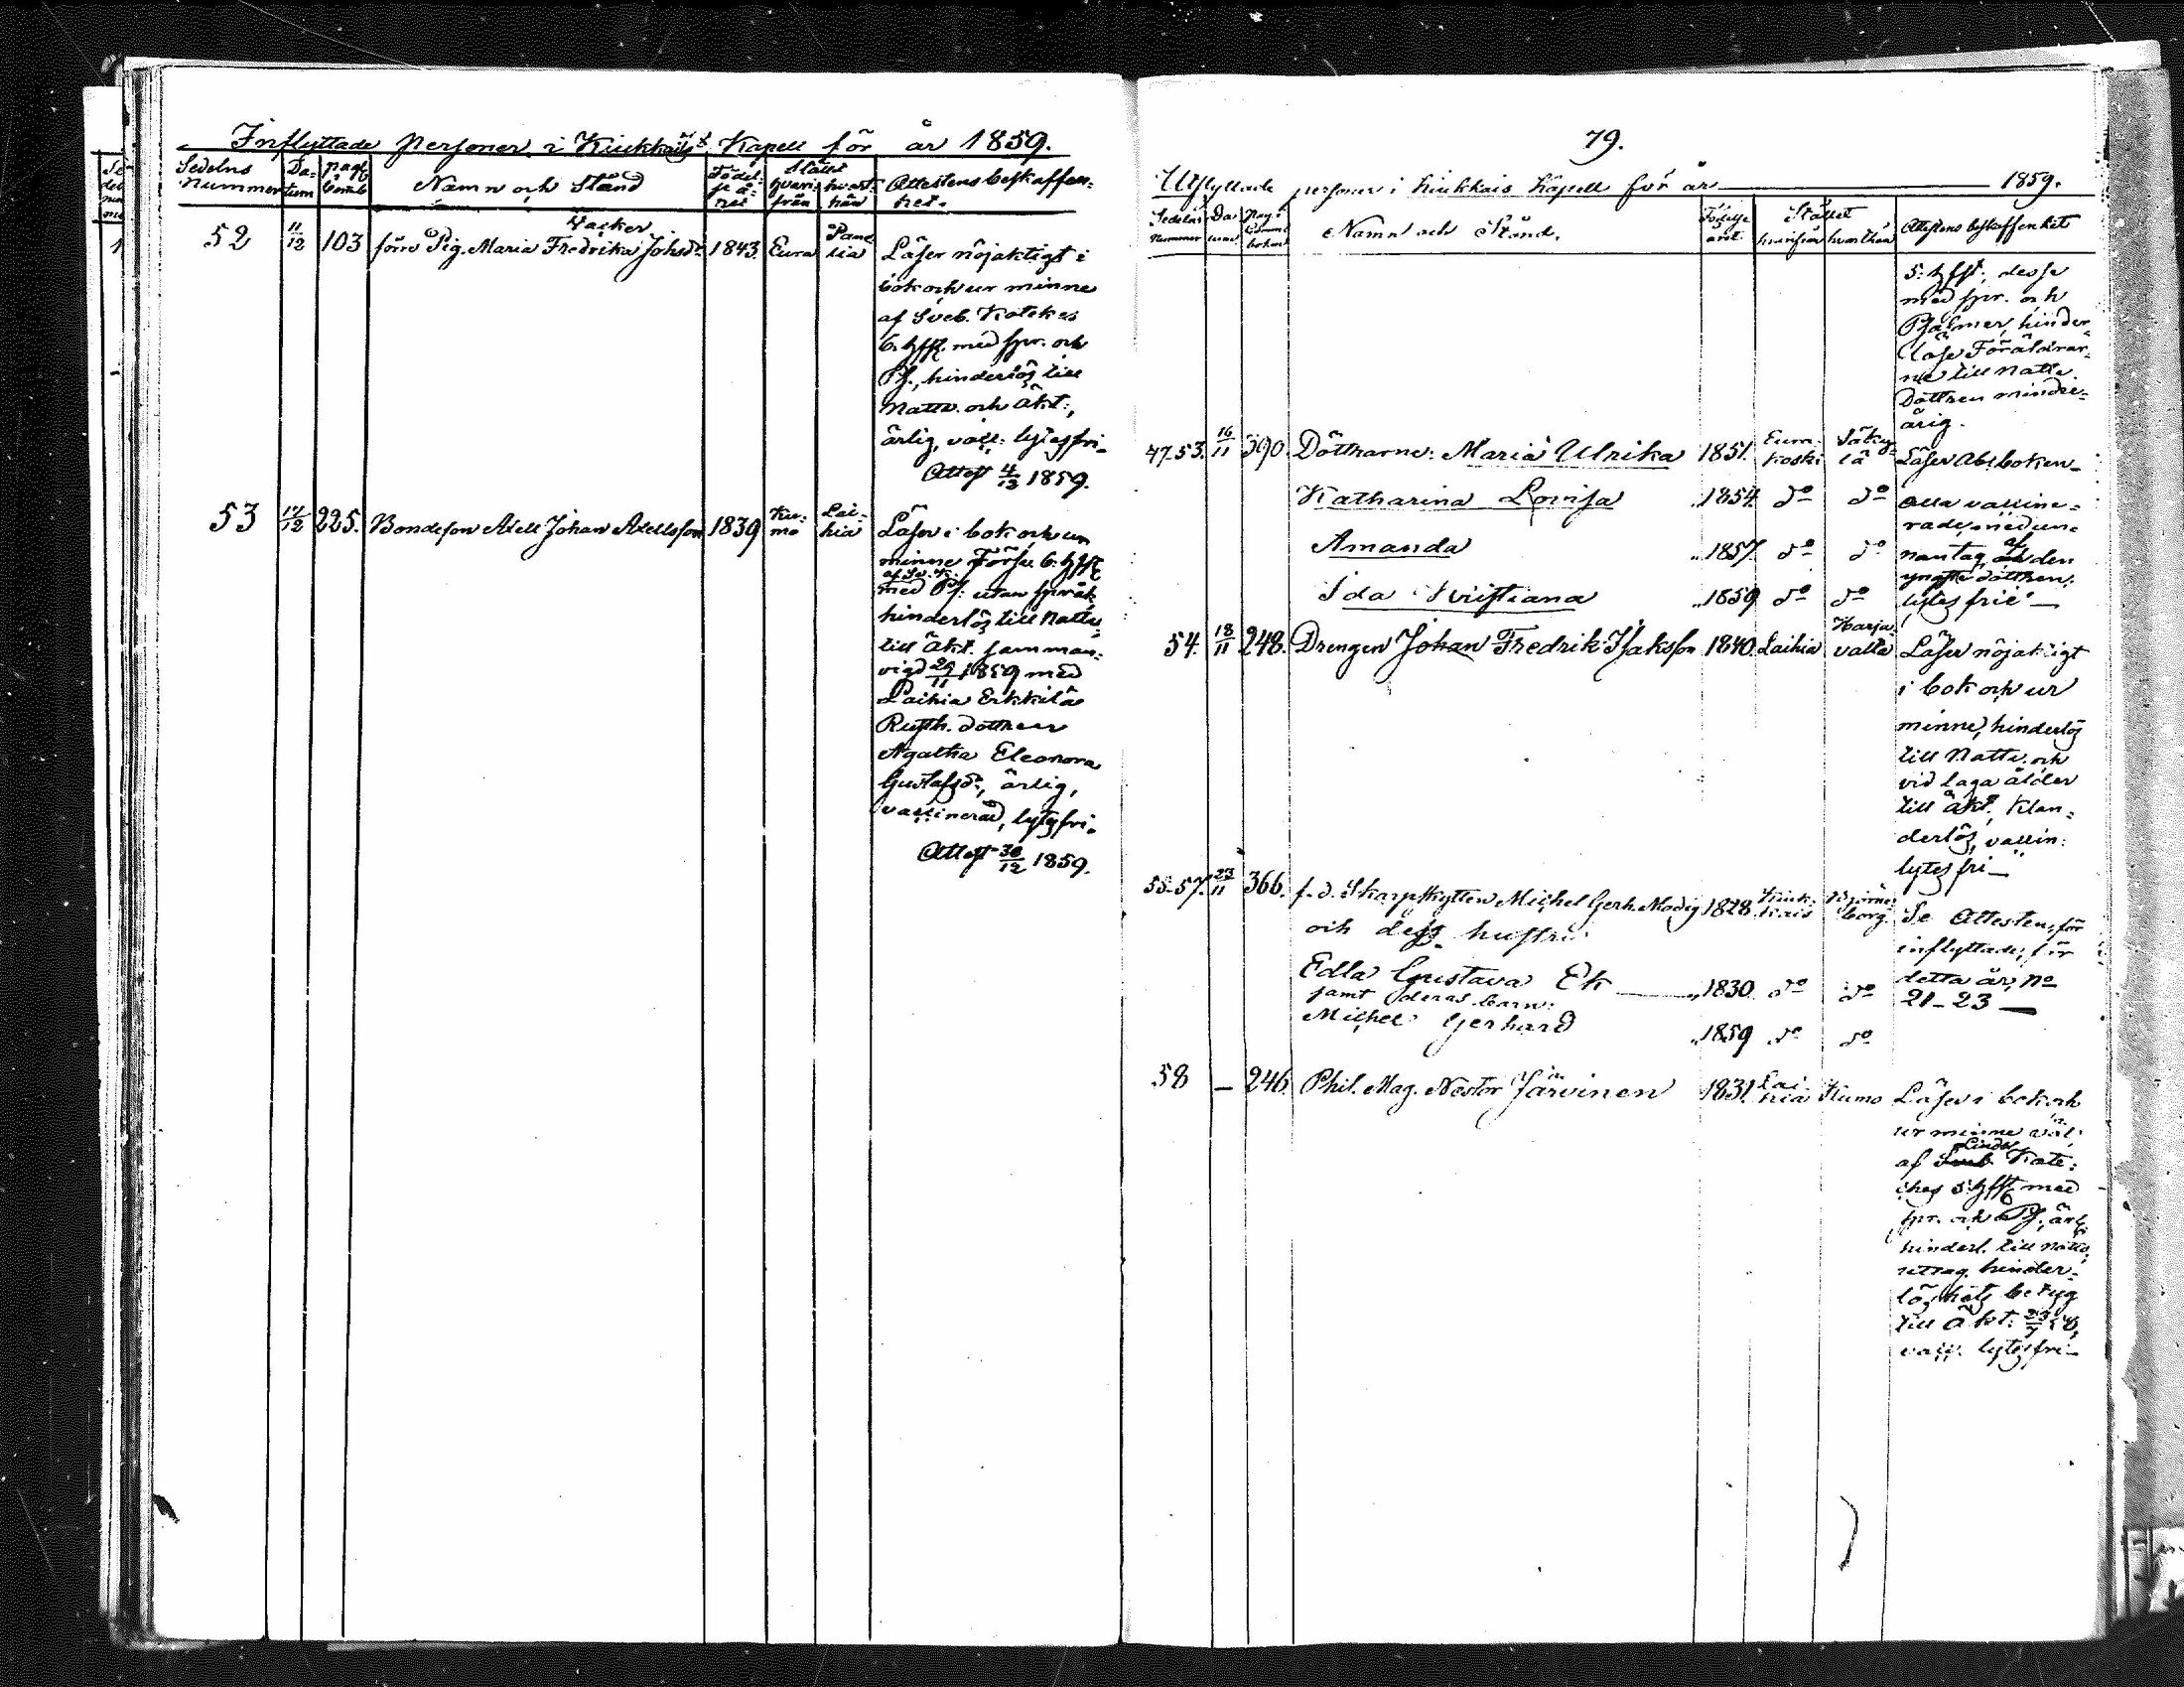 Inflyttade personer i Kiukkais Kapell för år 1859.
Sedelns Nummer Datum pag. Namn och Stånd Födelseåret Stället hvarifrån hvarthän Attestens beskaffenhet.
52 11/12 103 förre Pig. Maria Fredrika Johsdr. Wacker 1843. Eura Panelia
Läser nöjaktigt i
bok och ur minne
af Sveb. Kateches
6. hfst. med spr. och
Ps., hinderlös till
Nattv. och Äkt:,
ärlig, vacc: lytesfri.
Attest 4/12 1859.
53 17/12 225. Bondeson Axell Johan Axellsson 1839 Kumo Laihia
Läser i bok och ur
minne Förkl. 6. hfst.
af Sv. K.
med Ps: utan språk
hinderlös till Nattv.
till äkt. samman-
vigd 29/11 1859 med
Laihia Erkkilä
Rusth. dottren
Agatha Eleonora
Gustafsdr, ärlig,
vaccinerad, lytesfri.
Attest 30/12 1859.
79.
Utflyttade personer i Kiukkais Kapell för år 1859.
Sedelns Nummer Datum Namn och Stånd. Födelse året. Stället hvarifrån hvarthän Attestens beskaffenhet
5: hfst; desse
med spr. och
Psalmer, hinder-
löse Föräldrar-
ne till Nattv.
Dottren minder-
årig.
47.53. 16/11 390. Döttrarne: Maria Ulrika 1851. Eurakoski Säkylä Läser Abc boken
Katharina Lovisa „1854. do do Alla vaccine-
rade, med un-
Amanda „1857. do do nantag af den
yngsta dottren;
Ida Kristiana „1859 do do lytesfrie
54. 18/11 248. Drengen Johan Fredrik Isaksson 1840. Laihia Harjavalta Läser nöjaktigt
i bok och ur
minne, hinderlös
till Nattv. och
vid laga ålder
till äkt, Klan-
derlös, vaccin:
lytesfri
55-57. 23/11 366. f.d. Skarpskytten Michel Gerh. Modig 1828 Kiukkais Björneborg. Se Attesten, för
och dess hustru inflyttade, för
Edla Gustava Ek „1830. do do detta år, No
samt deras barn: 21-23
Michel Gerhard „1859 do do
58 – 246. Phil. Mag. Nestor Järvinen 1831. Laihia Kumo Läser i bok och
ur minne väl,
Linder
af Sveb Kate-
ches 5: hfst med
spr. och Ps, ärl.
hinderl. till Nattv.
uttag. hinder-
löshets betyg
till Äkt:
vacc. lytesfri